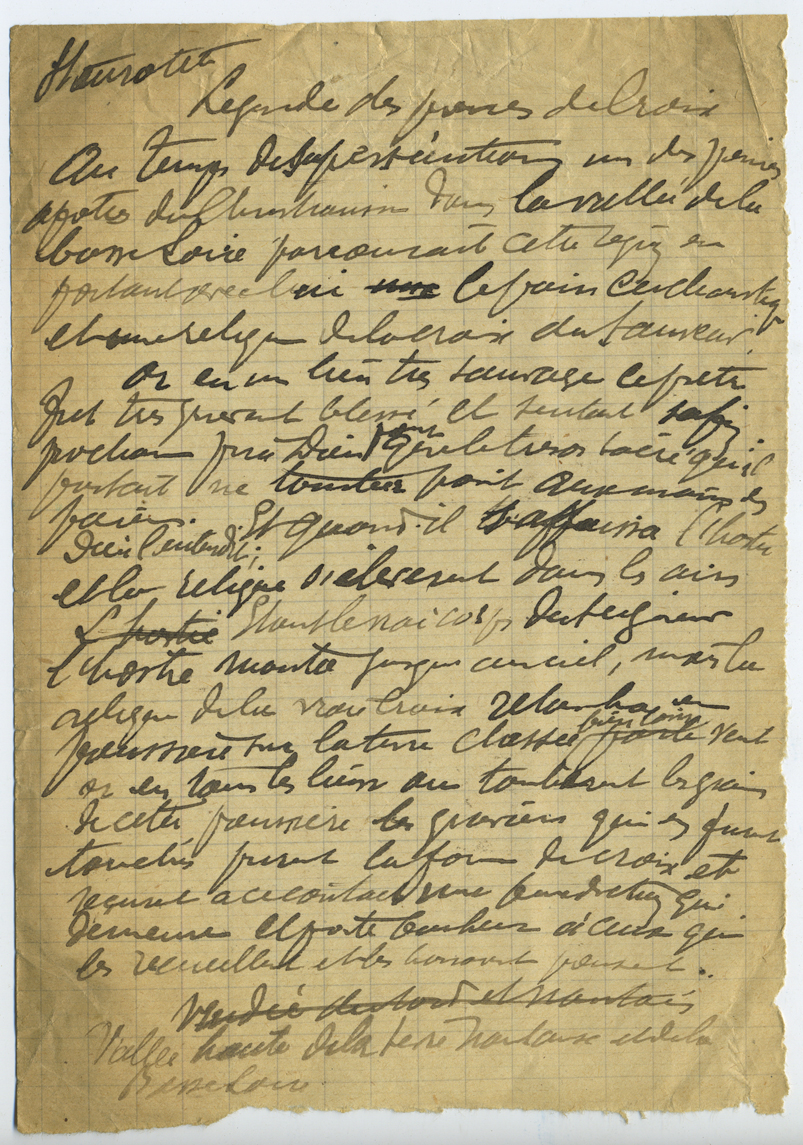 Staurotite
Legende des pierres de Croix
Au temps des persécutions un des premiers
apotres du Christianisme dans la vallée de la
basse Loire parcourait cette region en
portant avec lui une le pain Eucharistique
et une relique de la croix du Sauveur
Or en un lieu tres sauvage ce pretre
fut tres gravement blessé et sentant sa fin
prochaine pria Dieu pour que le tresor sacré qu'il
portait ne tombat point aux mains des
paiens. Et quand il s'affaissa l'hostie
Dieu l'entendit;
et la relique s'eleverent dans les airs
L'hostie Etant le vrai corps du Seigneur
l'hostie monta jusqu'au ciel, mais la
relique de la vraie Croix retomba en
poussiere sur la terre chassée bien loin par le vent
or en tous les lieux ou tomberent les grains
de cette poussiere les graviers qui en furent
touchés prirent la forme de croix et
reçurent a ce contact une benediction qui
demeure et porte bonheur à ceux qui
les recueillent et les
Vendée du nord et nantais
Vallée haute de la terre Nantaise et de la
Basse Loire